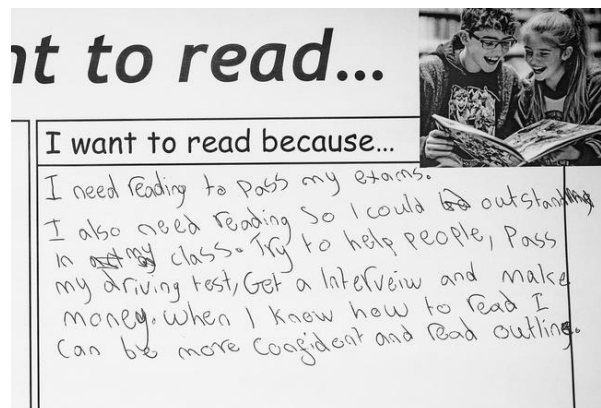 nt to read...
I want to read because...
I need reading to pass my exams.
I also need reading So I could outstanding
in my class. Try to help people, Pass
my driving test, Get a Interveiw and make
money. when I know how to read I
can be more confident and read outline.